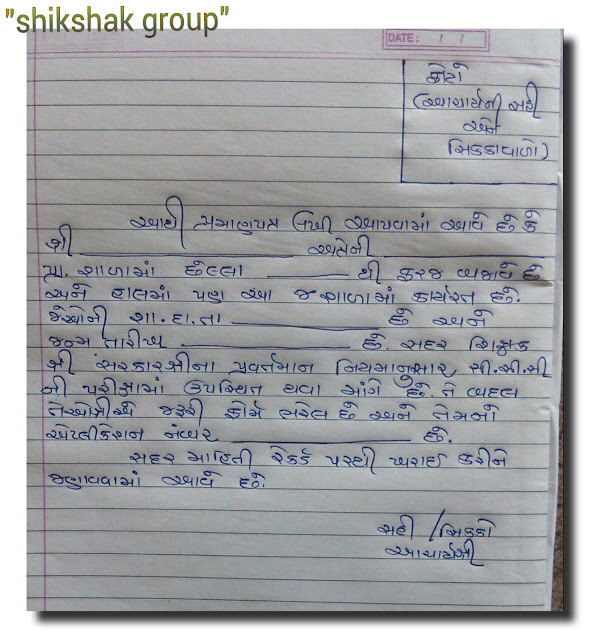 "shikshak group"
DATE: / /
ફોટો
(આચાર્યની સહી
અને
સિક્કાવાળો)
આથી પ્રમાણપત્ર લખી આપવામાં આવે છે કે
શ્રી ____________ અત્રેની ____________
પ્રા. શાળામાં છેલ્લા ________ થી ફરજ બજાવે છે
અને હાલમાં પણ આ જ શાળામાં કાર્યરત છે.
જેઓની શા.દા.તા ____________ છે અને
જન્મ તારીખ ____________ છે. સદર શિક્ષક
શ્રી સરકારશ્રીના પ્રવર્તમાન નિયમાનુસાર સી.સી.સી
ની પરીક્ષામાં ઉપસ્થિત થવા માંગે છે. તે બદલ
તેઓશ્રીએ જરૂરી ફોર્મ ભરેલ છે અને તેમનો
એપ્લીકેશન નંબર ____________ છે.
સદર માહિતી રેકર્ડ પરથી ખરાઈ કરીને
જણાવવામાં આવે છે.
સહી / સિક્કો
આચાર્યશ્રી